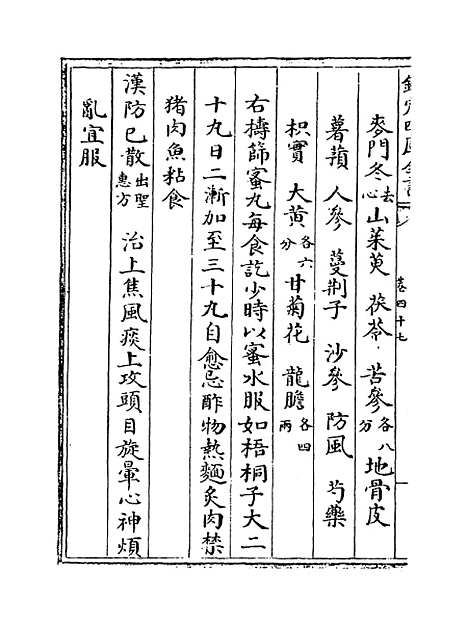 欽定四庫全書
卷四十七
麥門冬去心 山茱萸 茯苓 苦參各八分 地骨皮
薯蕷 人參 蔓荆子 沙參 防風 芍藥
枳實 大黄各六分 甘菊花 龍膽各四兩
右擣篩蜜丸每食訖少時以蜜水服如梧桐子大二
十九日二漸加至三十九自愈忌酢物熱麵炙肉禁
猪肉魚粘食
漢防已散出聖惠方 治上焦風痰上攻頭目旋暈心神煩
亂宜服